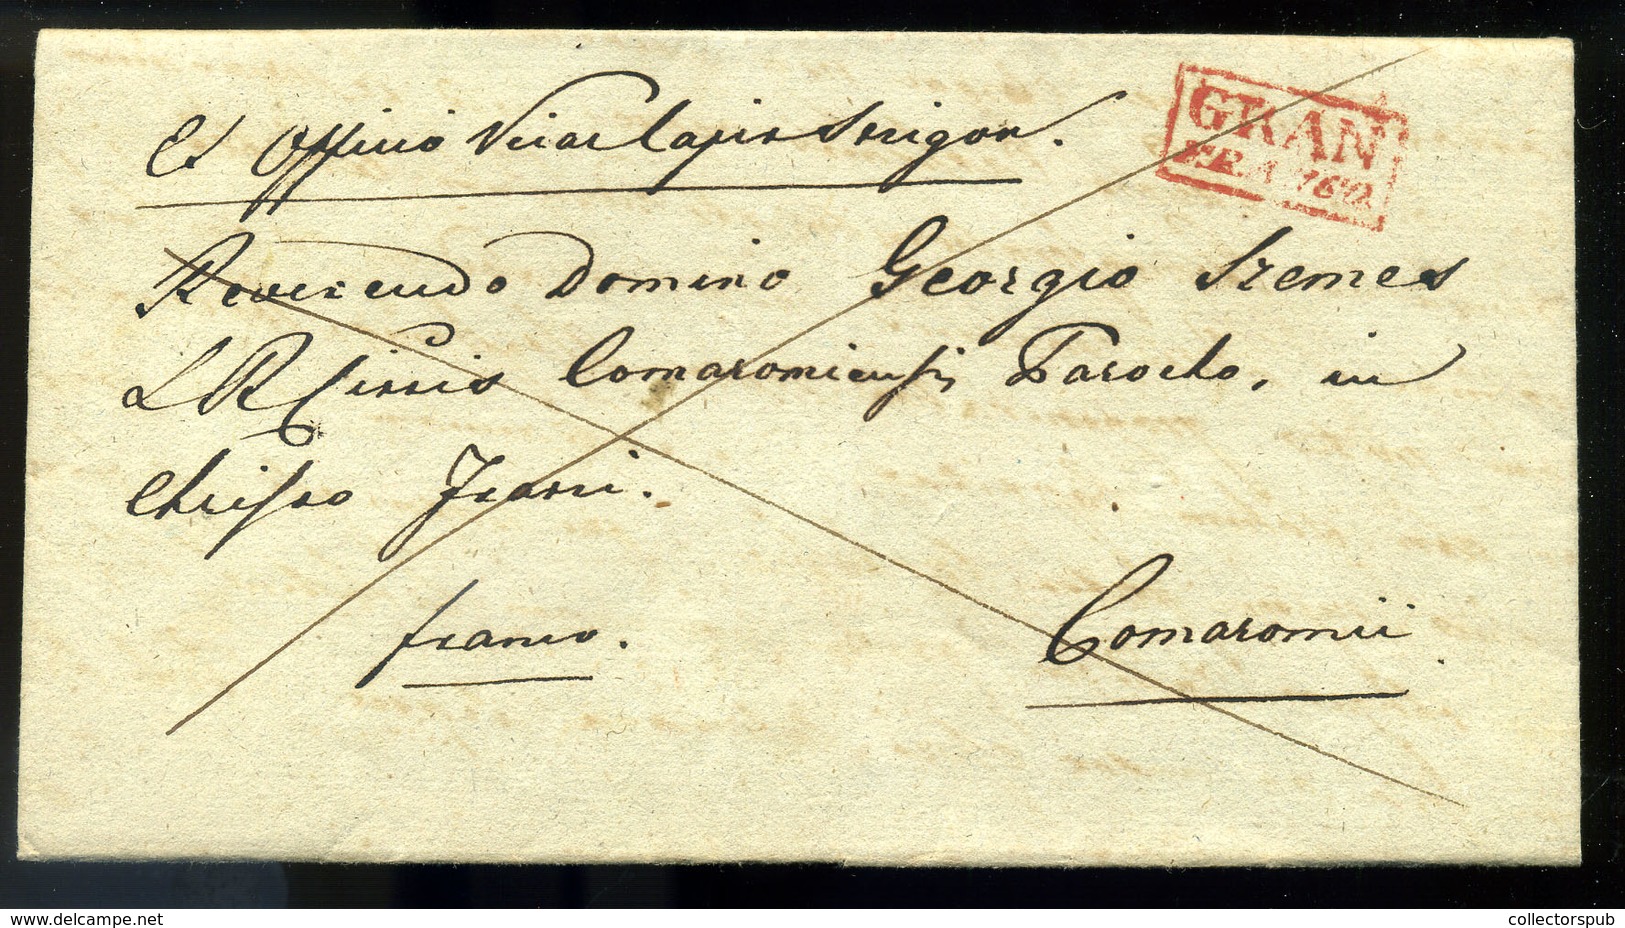 Ex Officio Vicar Capit Strigon.
GRAN
FRANCO
Reverendo Domino Georgio Szemes
L R Cittis Comaromiensis Parocho, in
Christo Fratri.
franco.
Comaromii
www.delcampe.net
collectorspub